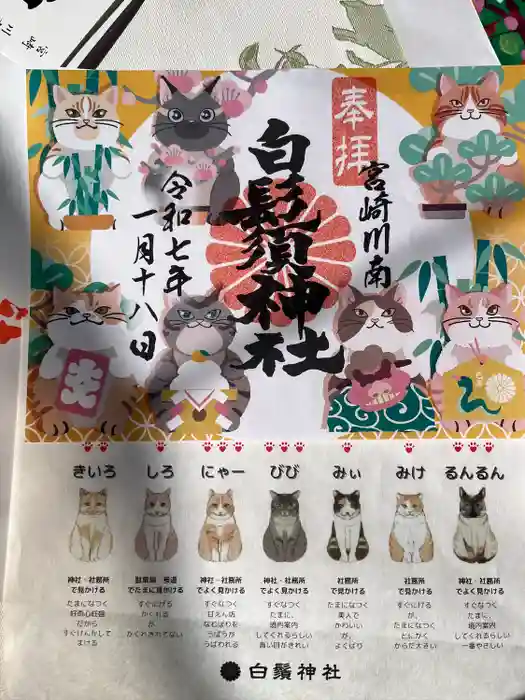 宮崎
奉拝
宮崎川南
白鬚須神社
令和七年
一月十八日
きいろ
しろ
にゃー
びび
みぃ
みけ
るんるん
神社・社務所
で見かける
たまになつく
好奇心旺盛
だから
すぐけんかして
まける
駐車場 参道
でたまに見かける
すぐにげる
かくれる
が、
かくれきれてない
神社・社務所
でよく見かける
すぐなつく
甘えん坊
なわばりを
うばうが
うばわれる
神社・社務所
でよく見かける
すぐなつく
たまに、
境内案内
してくれるらしい
青い目がきれい
社務所
で見かける
たまになつく
美人で
かわいい
が、
よくばり
社務所
で見かける
すぐにげる
が、
たまになつく
とにかく
からだ大きい
神社・社務所
でよく見かける
すぐなつく
たまに、
境内案内
してくれるらしい
一番やさしい
白鬚神社